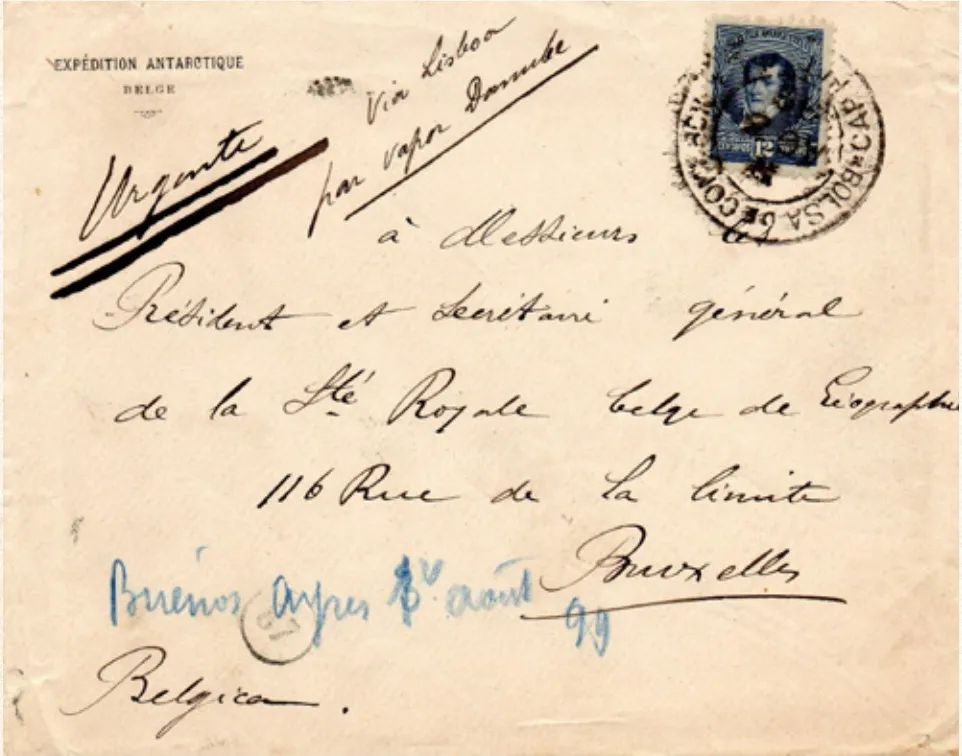 EXPÉDITION ANTARCTIQUE
BELGE
Urgente
Via Lisboa
par vapor Danube
12
BOLSA DE COM
à Messieurs
Président et Secrétaire général
de la Sté Royale belge de Géographie
116 Rue de la limite
Bruxelles
Buenos Ayres août
99
67
Belgica.